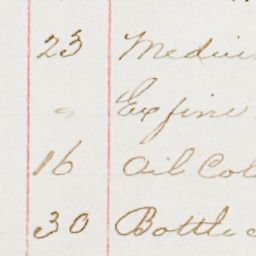 23 Medicin
" Exfine
16 Oil Col
30 Bottle